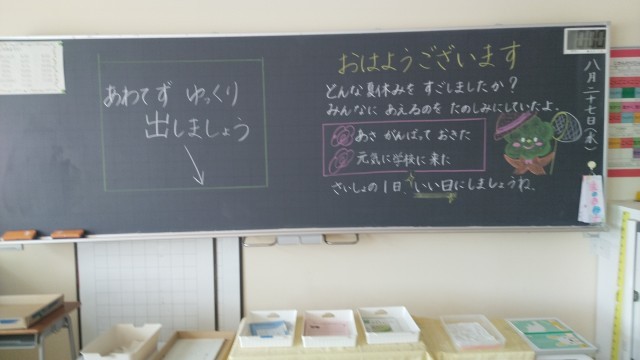 あわてず ゆっくり
出しましょう
おはようございます
どんな夏休みを すごしましたか?
みんなに あえるのを たのしみにしていたよ。
あさ がんばって おきた
元気に学校に来た
さいしょの1日、いい日にしましょうね。
八月二十七日(水)